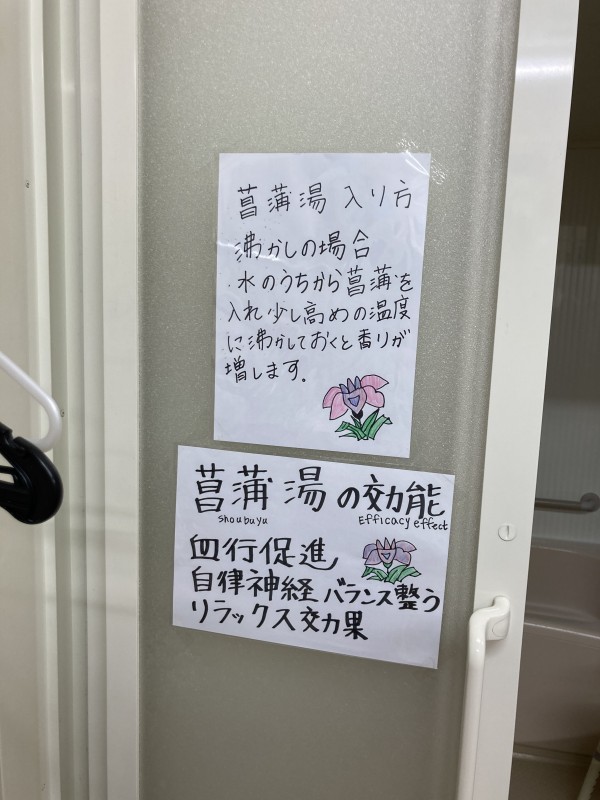 菖蒲湯 入り方
沸かしの場合
水のうちから菖蒲を
入れ少し高めの温度
に沸かしておくと香りが
増します.
菖蒲湯の効能
shoubuyu Efficacy effect
血行促進
自律神経バランス整う
リラックス効果